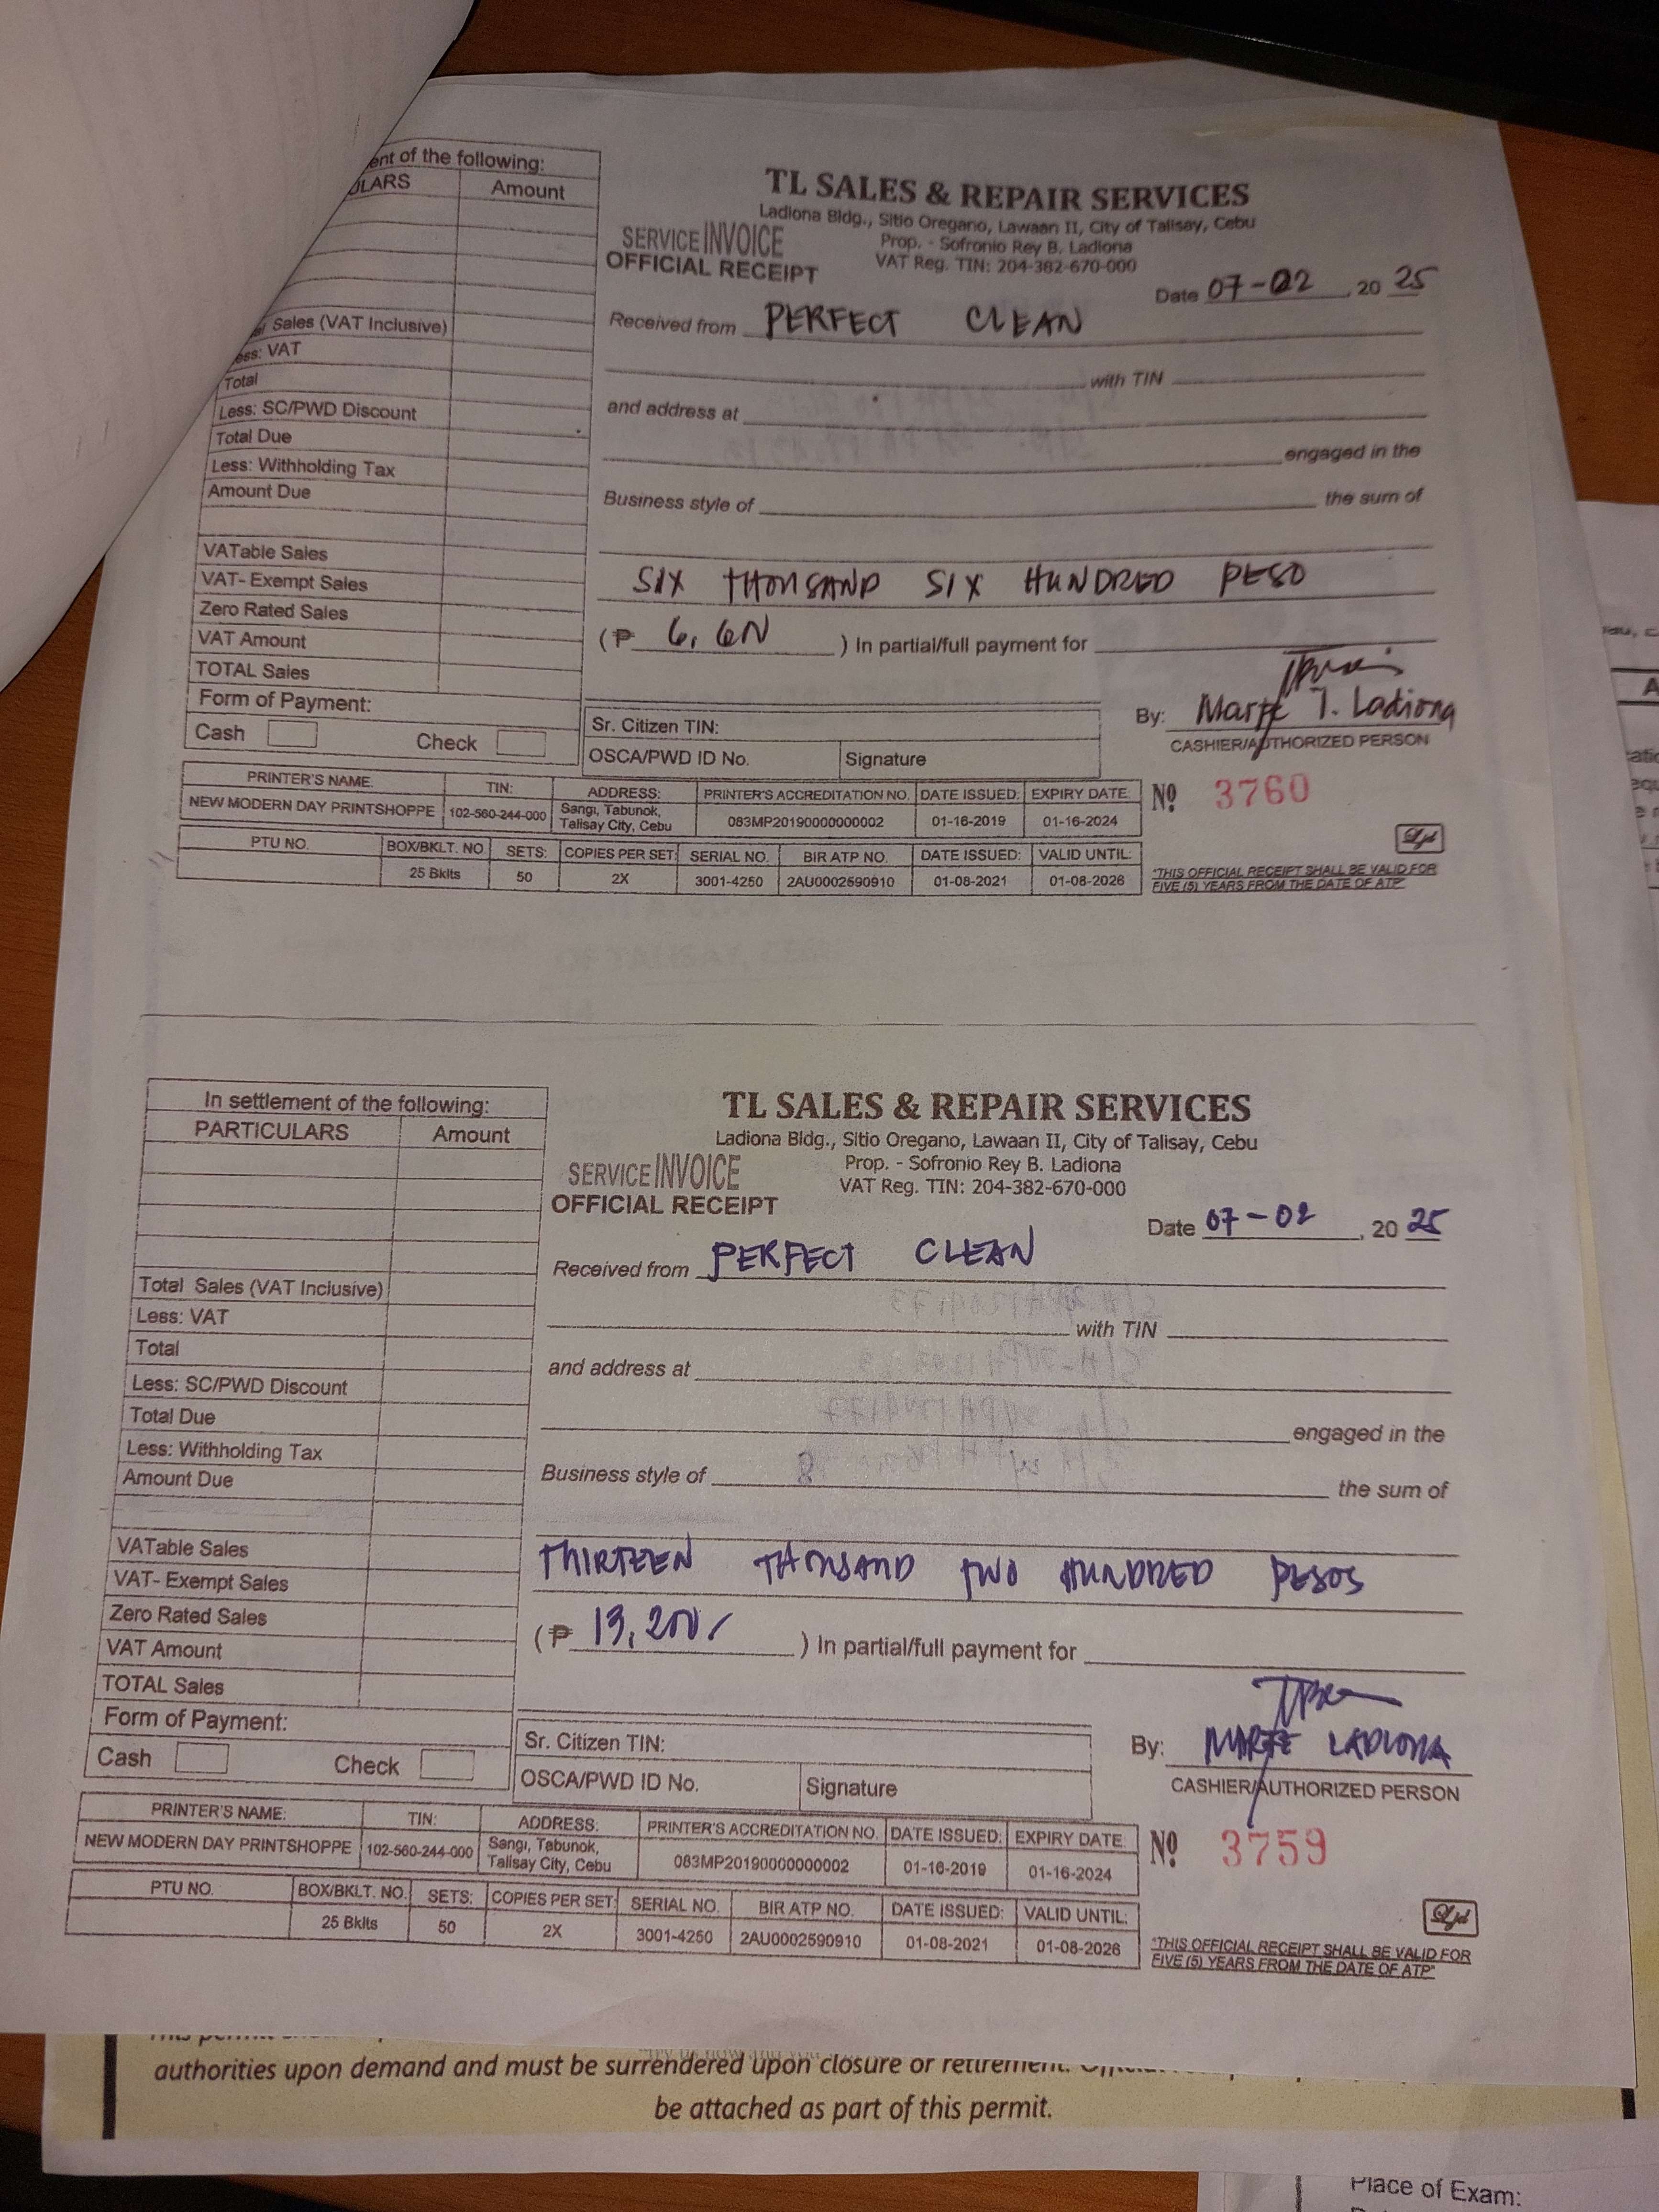 ent of the following:
ULARS Amount
Sales (VAT Inclusive)
ess: VAT
Total
Less: SC/PWD Discount
Total Due
Less: Withholding Tax
Amount Due
VATable Sales
VAT- Exempt Sales
Zero Rated Sales
VAT Amount
TOTAL Sales
Form of Payment:
Cash Check
TL SALES & REPAIR SERVICES
Ladiona Bldg., Sitio Oregano, Lawaan II, City of Talisay, Cebu
SERVICE INVOICE Prop. - Sofronio Rey B. Ladiona
OFFICIAL RECEIPT VAT Reg. TIN: 204-382-670-000
Date 07-02, 20 25
Received from PERFECT CLEAN
with TIN
and address at
engaged in the
Business style of the sum of
SIX THOUSAND SIX HUNDRED PESO
(₱ 6,600) In partial/full payment for
Sr. Citizen TIN:
OSCA/PWD ID No. Signature
By: Marfe T. Ladiona
CASHIER/AUTHORIZED PERSON
PRINTER'S NAME: TIN: ADDRESS: PRINTER'S ACCREDITATION NO. DATE ISSUED: EXPIRY DATE:
NEW MODERN DAY PRINTSHOPPE 102-560-244-000 Sangi, Tabunok, Talisay City, Cebu 083MP20190000000002 01-16-2019 01-16-2024
№ 3760
PTU NO. BOX/BKLT. NO. SETS: COPIES PER SET: SERIAL NO. BIR ATP NO. DATE ISSUED: VALID UNTIL:
25 Bklts 50 2X 3001-4250 2AU0002590910 01-08-2021 01-08-2026
"THIS OFFICIAL RECEIPT SHALL BE VALID FOR
FIVE (5) YEARS FROM THE DATE OF ATP"
In settlement of the following:
PARTICULARS Amount
Total Sales (VAT Inclusive)
Less: VAT
Total
Less: SC/PWD Discount
Total Due
Less: Withholding Tax
Amount Due
VATable Sales
VAT- Exempt Sales
Zero Rated Sales
VAT Amount
TOTAL Sales
Form of Payment:
Cash Check
TL SALES & REPAIR SERVICES
Ladiona Bldg., Sitio Oregano, Lawaan II, City of Talisay, Cebu
SERVICE INVOICE Prop. - Sofronio Rey B. Ladiona
OFFICIAL RECEIPT VAT Reg. TIN: 204-382-670-000
Date 07-02, 20 25
Received from PERFECT CLEAN
with TIN
and address at
engaged in the
Business style of the sum of
THIRTEEN THOUSAND TWO HUNDRED PESOS
(₱ 13,200/) In partial/full payment for
Sr. Citizen TIN:
OSCA/PWD ID No. Signature
By: MARFE LADIONA
CASHIER/AUTHORIZED PERSON
PRINTER'S NAME: TIN: ADDRESS: PRINTER'S ACCREDITATION NO. DATE ISSUED: EXPIRY DATE:
NEW MODERN DAY PRINTSHOPPE 102-560-244-000 Sangi, Tabunok, Talisay City, Cebu 083MP20190000000002 01-16-2019 01-16-2024
№ 3759
PTU NO. BOX/BKLT. NO. SETS: COPIES PER SET: SERIAL NO. BIR ATP NO. DATE ISSUED: VALID UNTIL:
25 Bklts 50 2X 3001-4250 2AU0002590910 01-08-2021 01-08-2026
"THIS OFFICIAL RECEIPT SHALL BE VALID FOR
FIVE (5) YEARS FROM THE DATE OF ATP"
authorities upon demand and must be surrendered upon closure or retirement.
be attached as part of this permit.
Place of Exam: